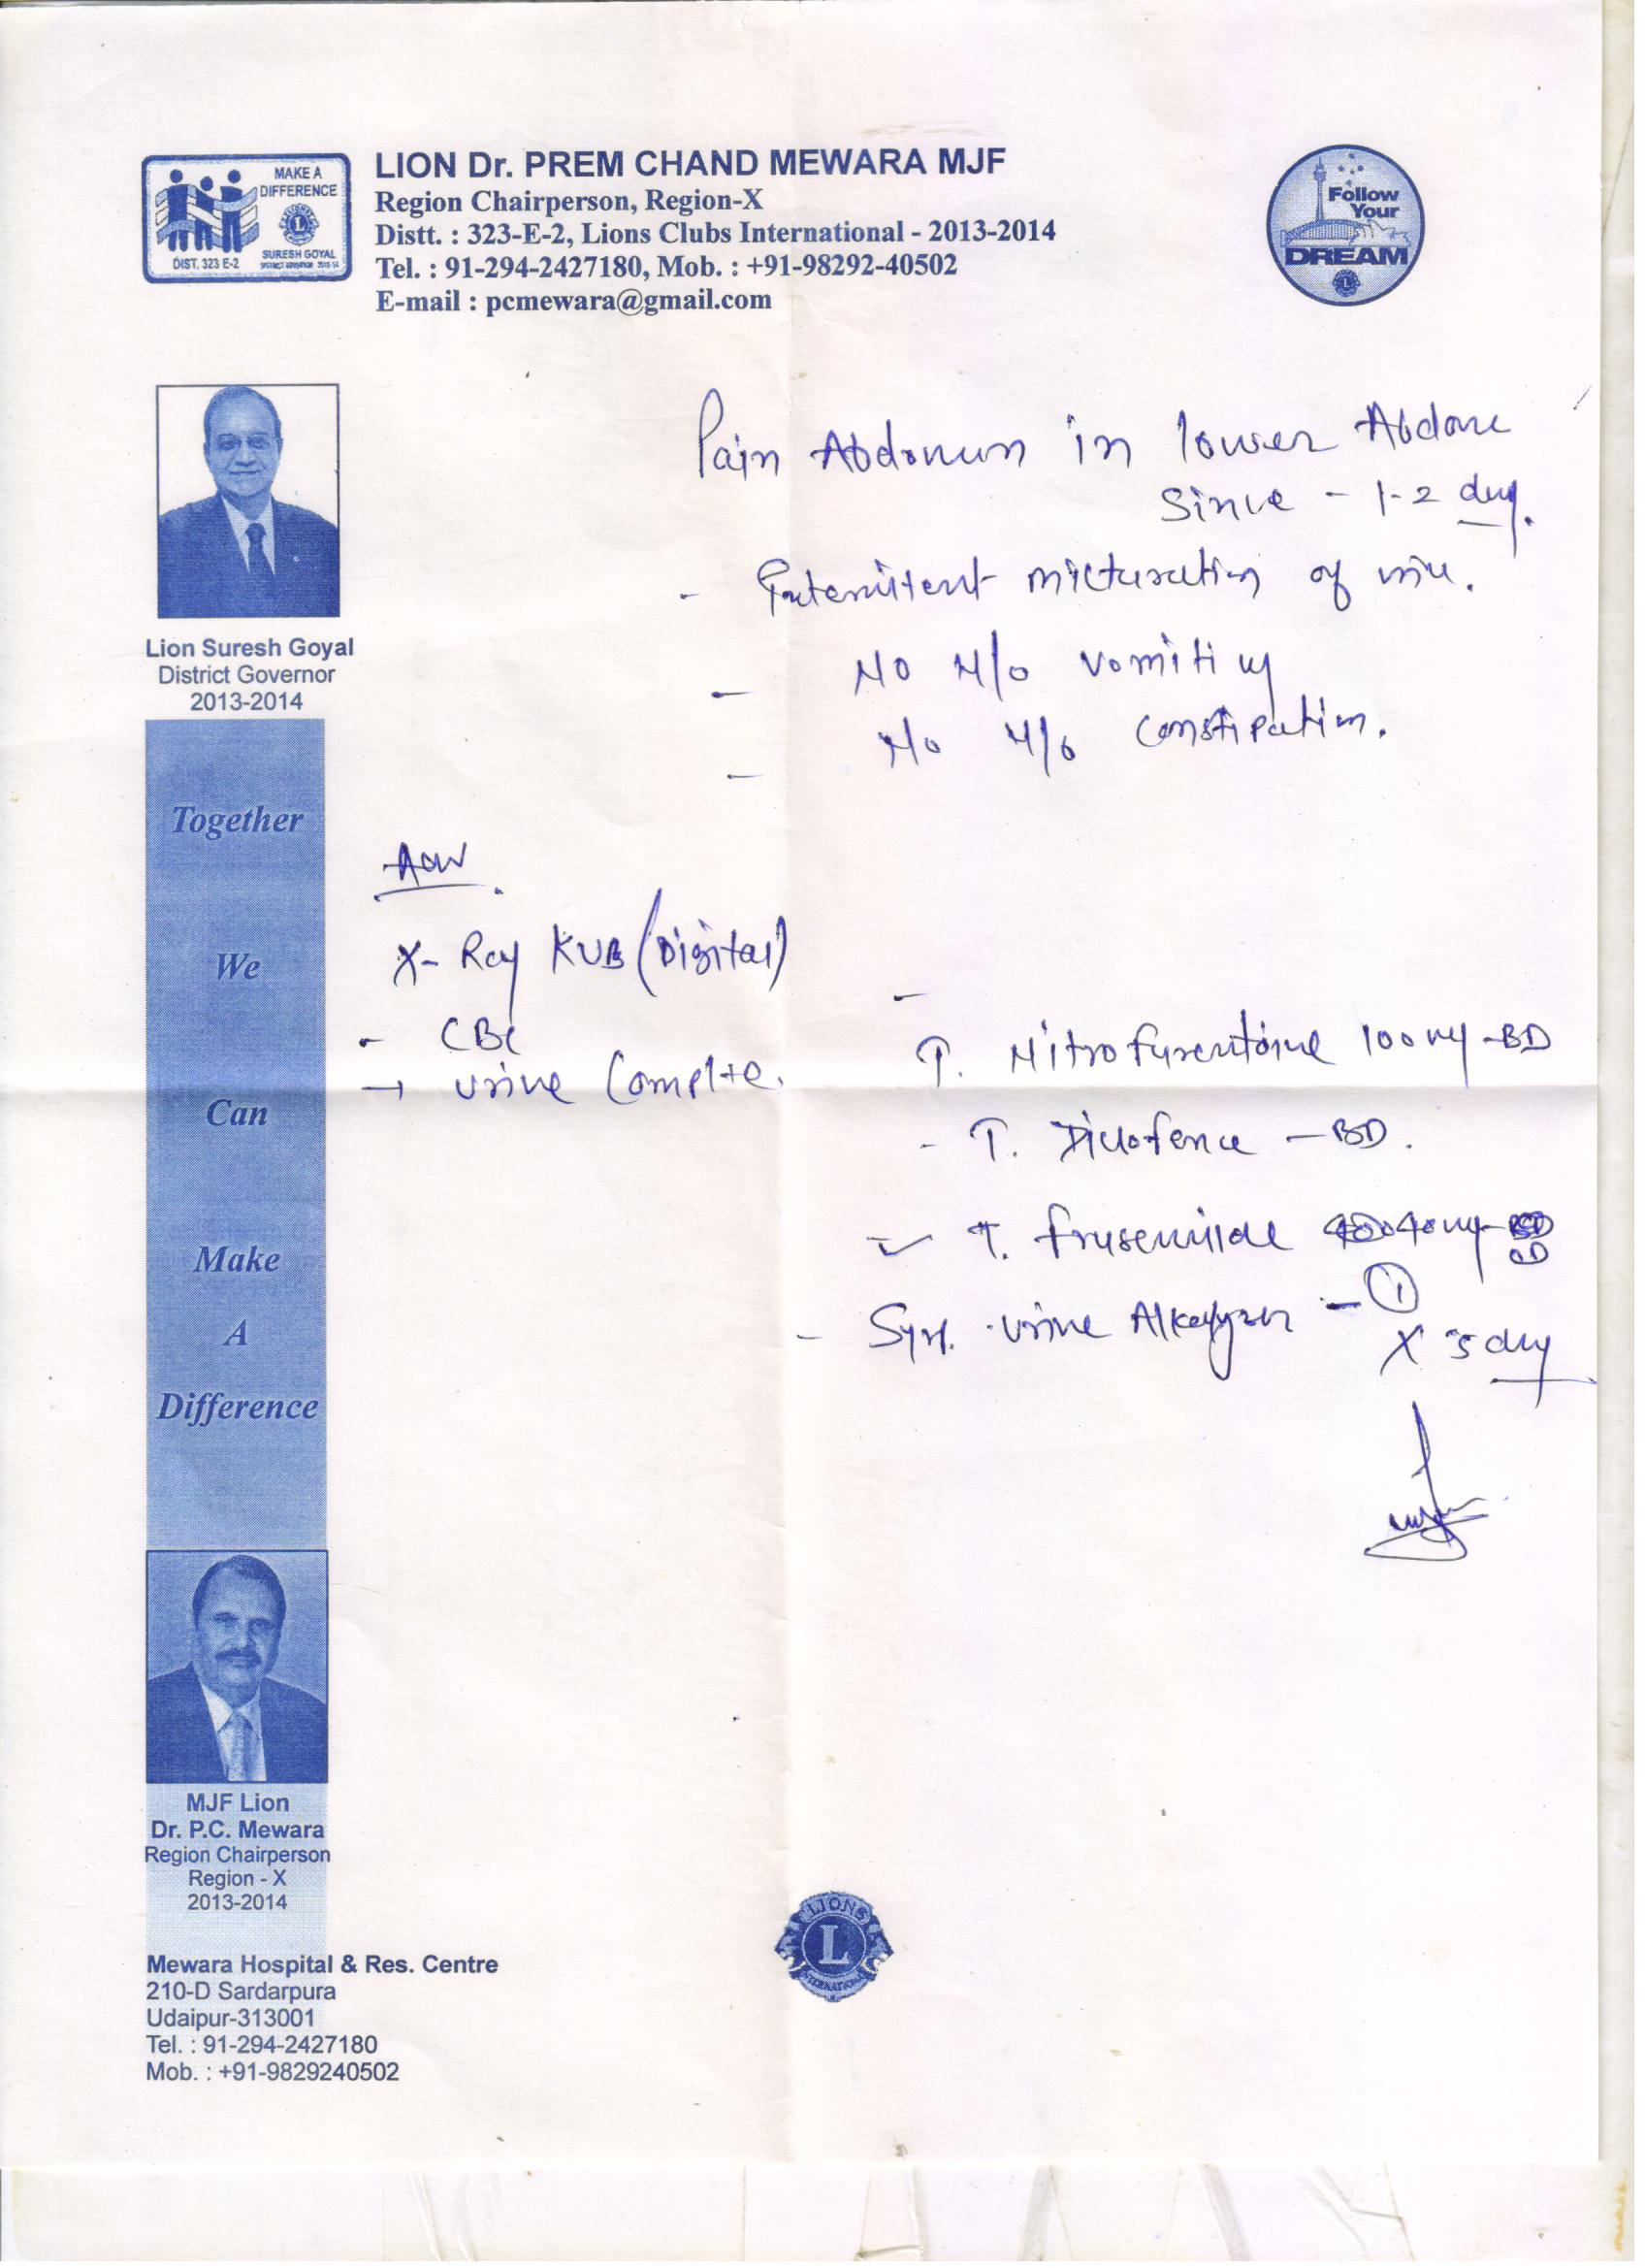 MAKE A
DIFFERENCE
SURESH GOYAL
DIST. 323 E-2
LION Dr. PREM CHAND MEWARA MJF
Region Chairperson, Region-X
Distt. : 323-E-2, Lions Clubs International - 2013-2014
Tel. : 91-294-2427180, Mob. : +91-98292-40502
E-mail : pcmewara@gmail.com
Follow
Your
DREAM
Pain Abdomen in lower Abdome
Since - 1-2 day.
- Intermittent micturation of urine.
- No H/o vomiting
- No H/o constipation.
Lion Suresh Goyal
District Governor
2013-2014
Together
We
Can
Make
A
Difference
Adv
X-Ray KUB (Digital)
- CBC
→ urine Complte.
T. Nitrofurentoine 100mg -BD
- T. Diclofence - BD.
- T. frusemide 40mg - OD
- Syr. urine Alkalyzer - 1
X 5 day
MJF Lion
Dr. P.C. Mewara
Region Chairperson
Region - X
2013-2014
LIONS
L
INTERNATIONAL
Mewara Hospital & Res. Centre
210-D Sardarpura
Udaipur-313001
Tel. : 91-294-2427180
Mob. : +91-9829240502